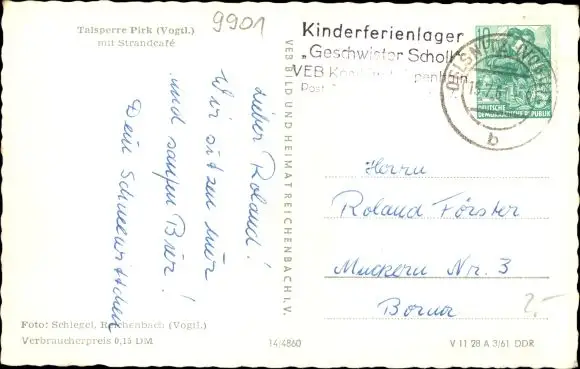 Talsperre Pirk (Vogtl.)
mit Strandcafé
9901
Lieber Roland!
Wir sitzen hier
und saufen Bier!
Dein Schneewittchen
Foto: Schlegel, Reichenbach (Vogtl.)
Verbraucherpreis 0,15 DM
VEB BILD UND HEIMAT REICHENBACH I. V.
14/4860
Kinderferienlager
„Geschwister Scholl“
VEB
Post
10
DEUTSCHE
DEMOKRATISCHE REPUBLIK
OELSNITZ (VOGTL)
b
Herrn
Roland Förster
Muckern Nr. 3
Borna
2,-
V 11 28 A 3/61 DDR